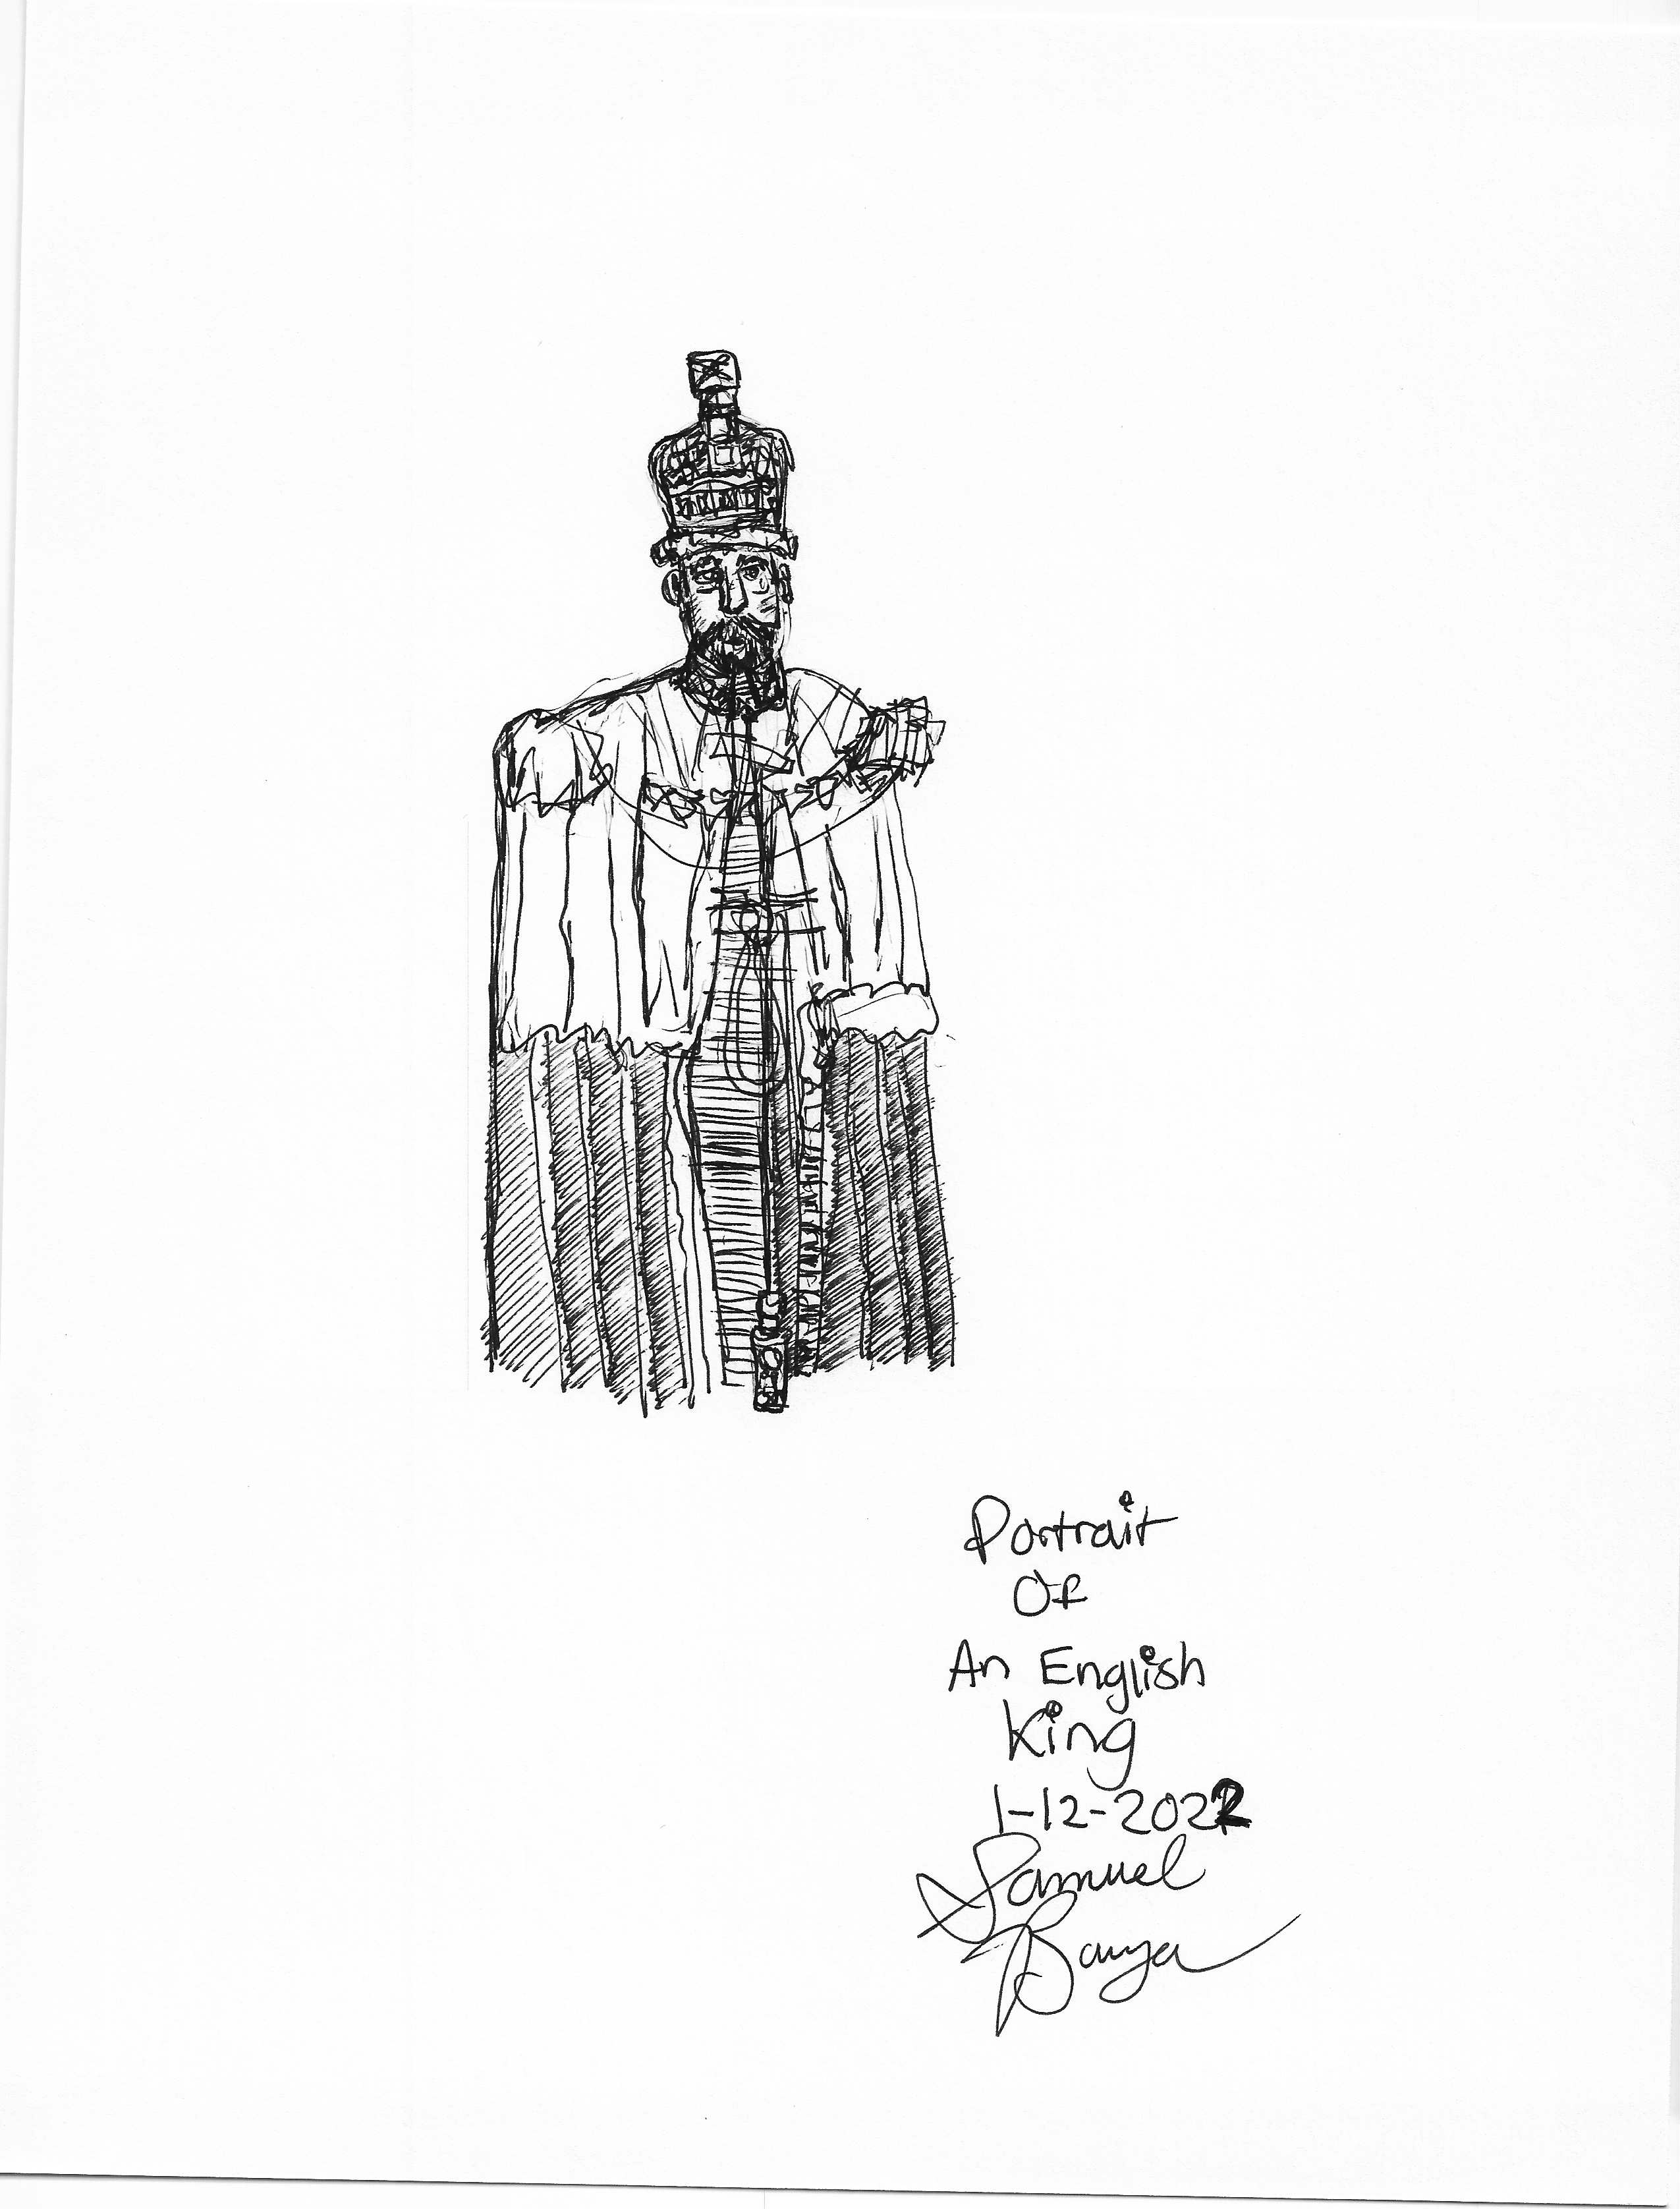 Portrait
Of
An English
King
1-12-2022
Samuel
Banya